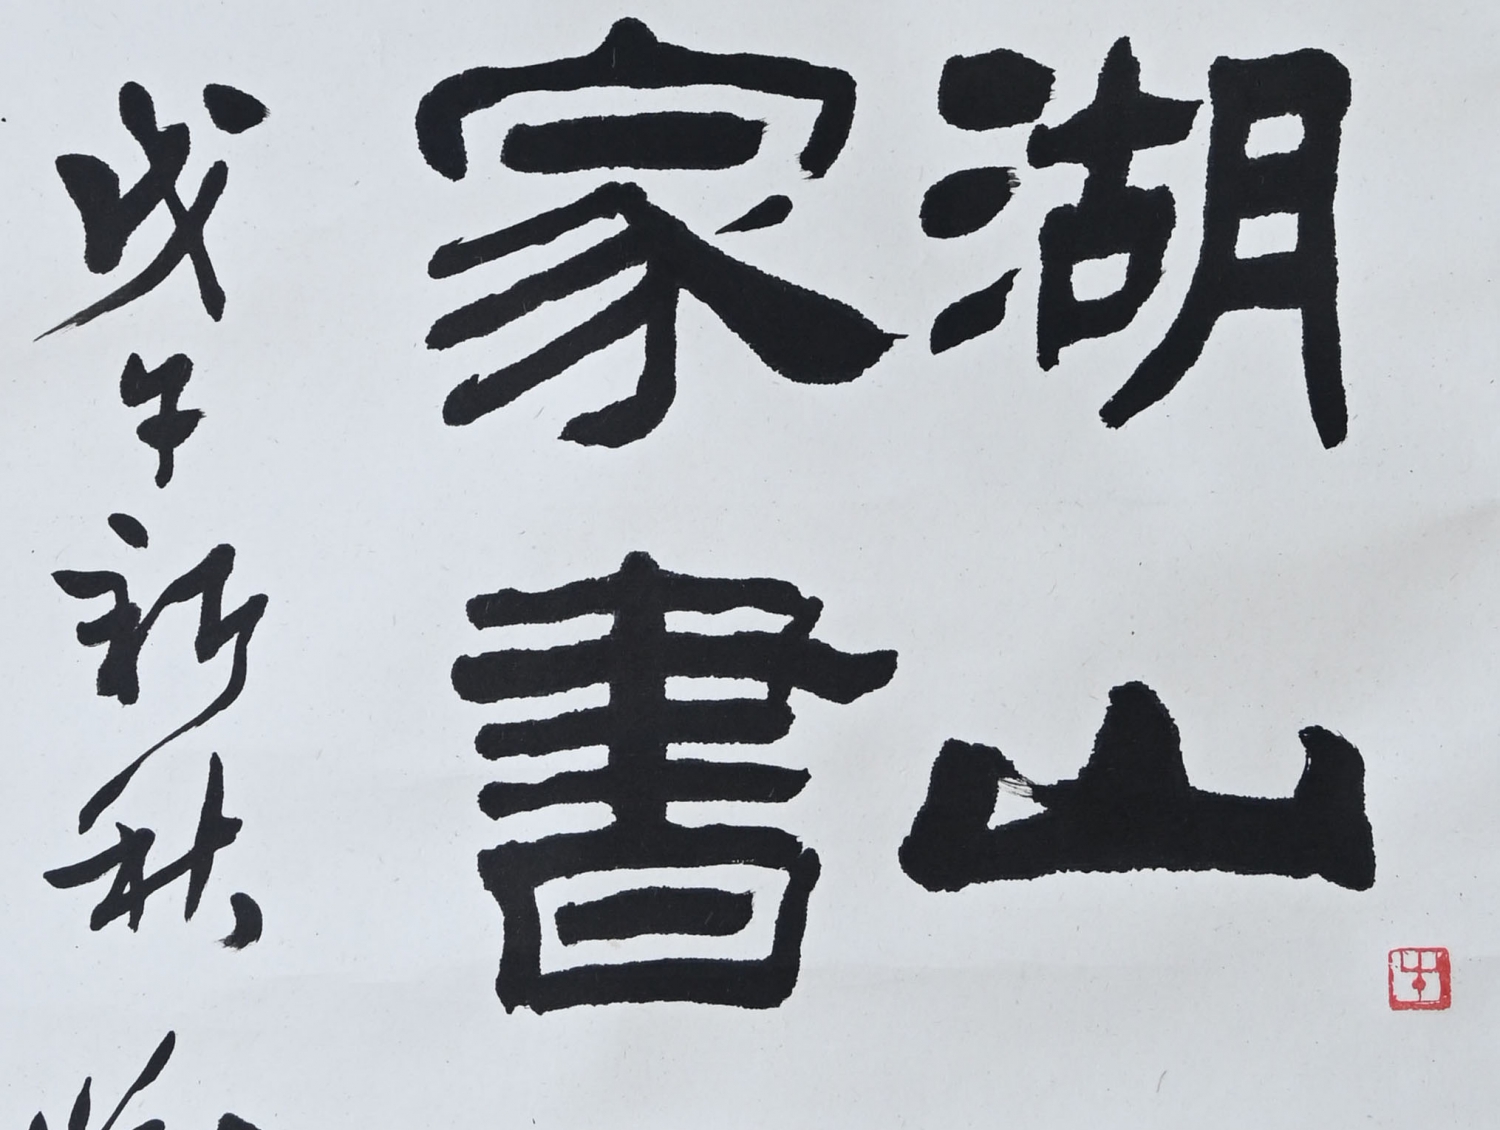 湖山
家書
戊午新秋